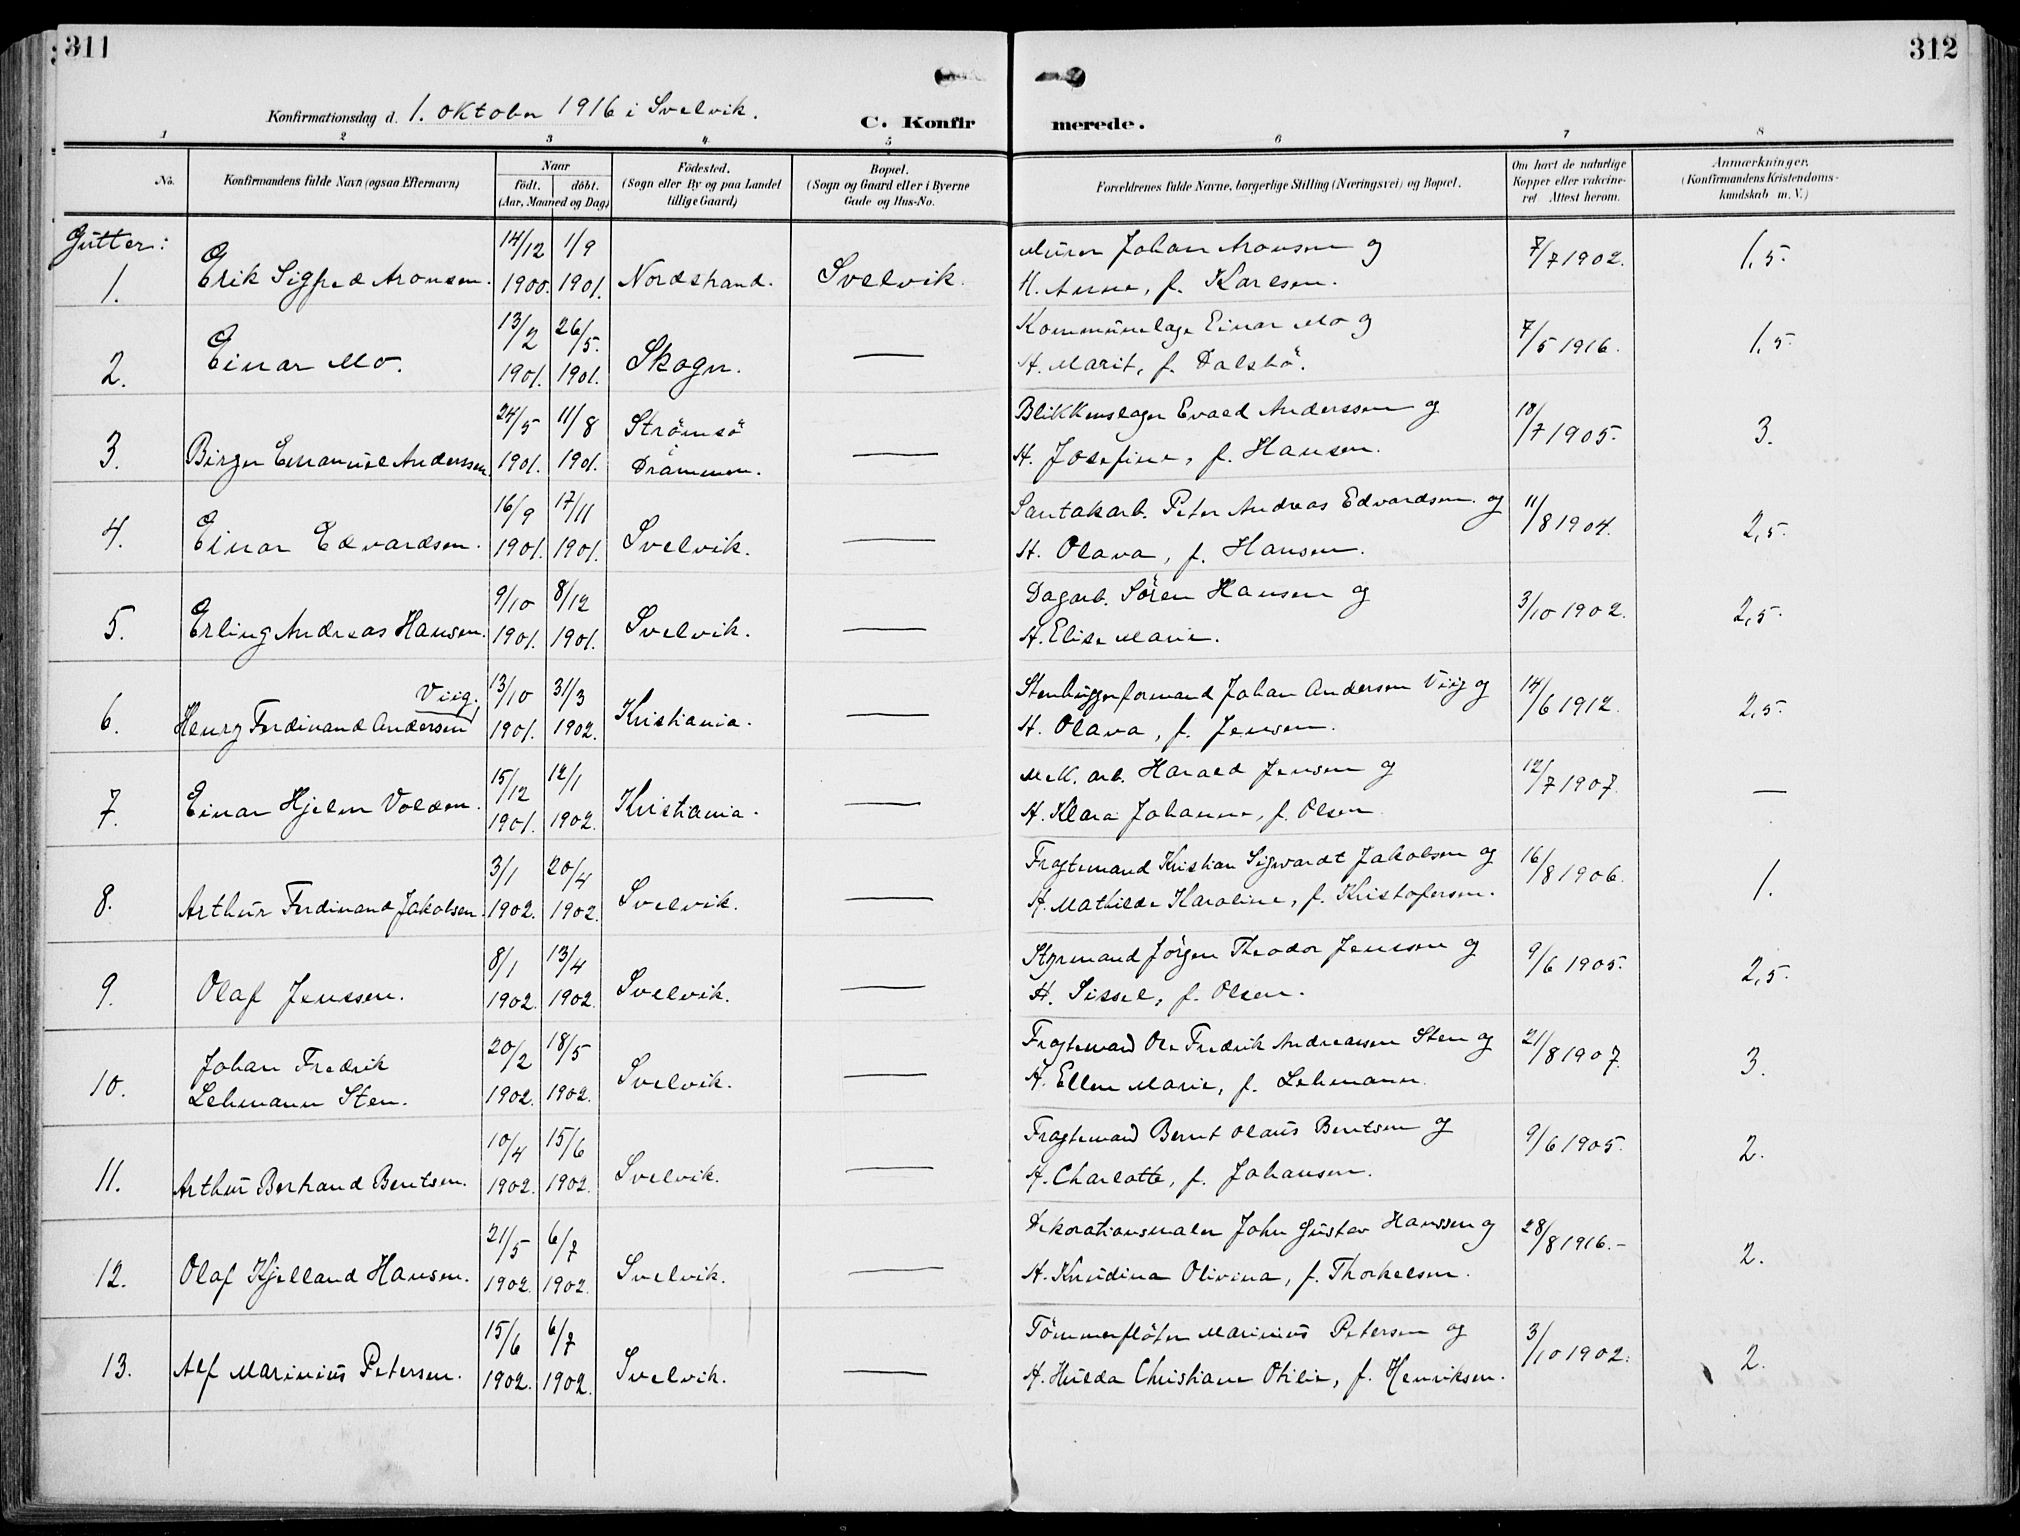 311
312
Konfirmationsdag d. 1. oktober 1916 i Svelvik.
C. Konfir
merede.
1 2 3 4 5 6 7 8
No.
Konfirmandens fulde Navn (ogsaa Efternavn)
Naar
födt. döbt.
(Aar, Maaned og Dag)
Födested.
(Sogn eller By og paa Landet
tillige Gaard)
Bopæl.
(Sogn og Gaard eller i Byerne
Gade og Hus-No.
Forældrenes fulde Navne, borgerlige Stilling (Næringsvei) og Bopæl.
Om havt de naturlige
Kopper eller vakcine-
ret Attest herom.
Anmærkninger.
(Konfirmandens Kristendoms-
kundskab m. V.)
Gutter:
1. Erik Sigfred Aronsen. 14/12 1900. 1/9 1901. Nordstrand. Svelvik. Murer Johan Aronsen og 7/7 1902. 1,5.
H. Anna, f. Karlsen.
2. Einar Mo. 13/2 1901. 26/5. 1901. Skogn. — Einar Mo og 7/5 1916. 1,5.
H. Marit, f. Dalsbö.
3. Birger Emanuel Anderssen 24/5 1901. 11/8 1901. Strömsö — Blikkenslager Evald Anderssen og 10/7 1905. 3.
Drammen. H. Josefine, f. Hansen.
4. Einar Edvardsen. 16/9 1901. 17/11 1901. Svelvik. — Peter Andreas Edvardsen og 11/8 1904. 2,5.
H. Olava, f. Hansen.
5. Erling Andreas Hansen. 9/10 1901. 8/12 1901. Svelvik. — Dagarb. Sören Hansen og 3/10 1902. 2,5.
H. Elise Marie.
Viig.
6. Henry Ferdinand Andersen 13/10 1901. 31/3 1902. Kristiania. — Stenhuggerformand Johan Andersen Viig og 14/6 1912. 2,5.
H. Olava, f. Jensen.
7. Einar Hjelm Volden. 15/12 1901. 12/1 1902. Kristiania. — Mek. arb. Harald Jensen og 12/7 1907. —
H. Klara Johanne, f. Olsen
8. Arthur Ferdinand Jakobsen. 3/1 1902. 20/4 1902. Svelvik. — Fragtemand Kristian Sigwardt Jakobsen og 16/8 1906. 1.
H. Mathilde Karoline, f. Kristofersen.
9. Olaf Jenssen. 8/1 1902. 13/4 1902. Svelvik. — Styrmand Jörgen Theodor Jenssen og 9/6 1905. 2,5.
H. Sissel, f. Olsen.
10. Johan Fredrik 20/2 1902. 18/5 1902. Svelvik. — Fragtemand Ole Fredrik Andreassen Sten og 21/8 1907. 3.
Lehmann Sten. H. Ellen Marie, f. Lehmann.
11. Arthur Berhand Berntsen. 10/4 1902. 15/6 1902. Svelvik. — Fragtemand Bernt Olaus Berntsen og 9/6 1905. 2.
H. Charlotte, f. Johansen.
12. Olaf Kjelland Hansen. 21/5 1902. 6/7 1902. Svelvik. — Dekorationsmaler John Gustav Hanssen og 28/8 1916.- 2.
H. Knudina Olivina, f. Thorkelsen.
13. Alf Marinius Petersen. 15/6 1902. 6/7 1902. Svelvik. — Tömmerflöter Marinius Petersen og 3/10 1902. 2.
H. Hulda Christiane Otilie, f. Henriksen.